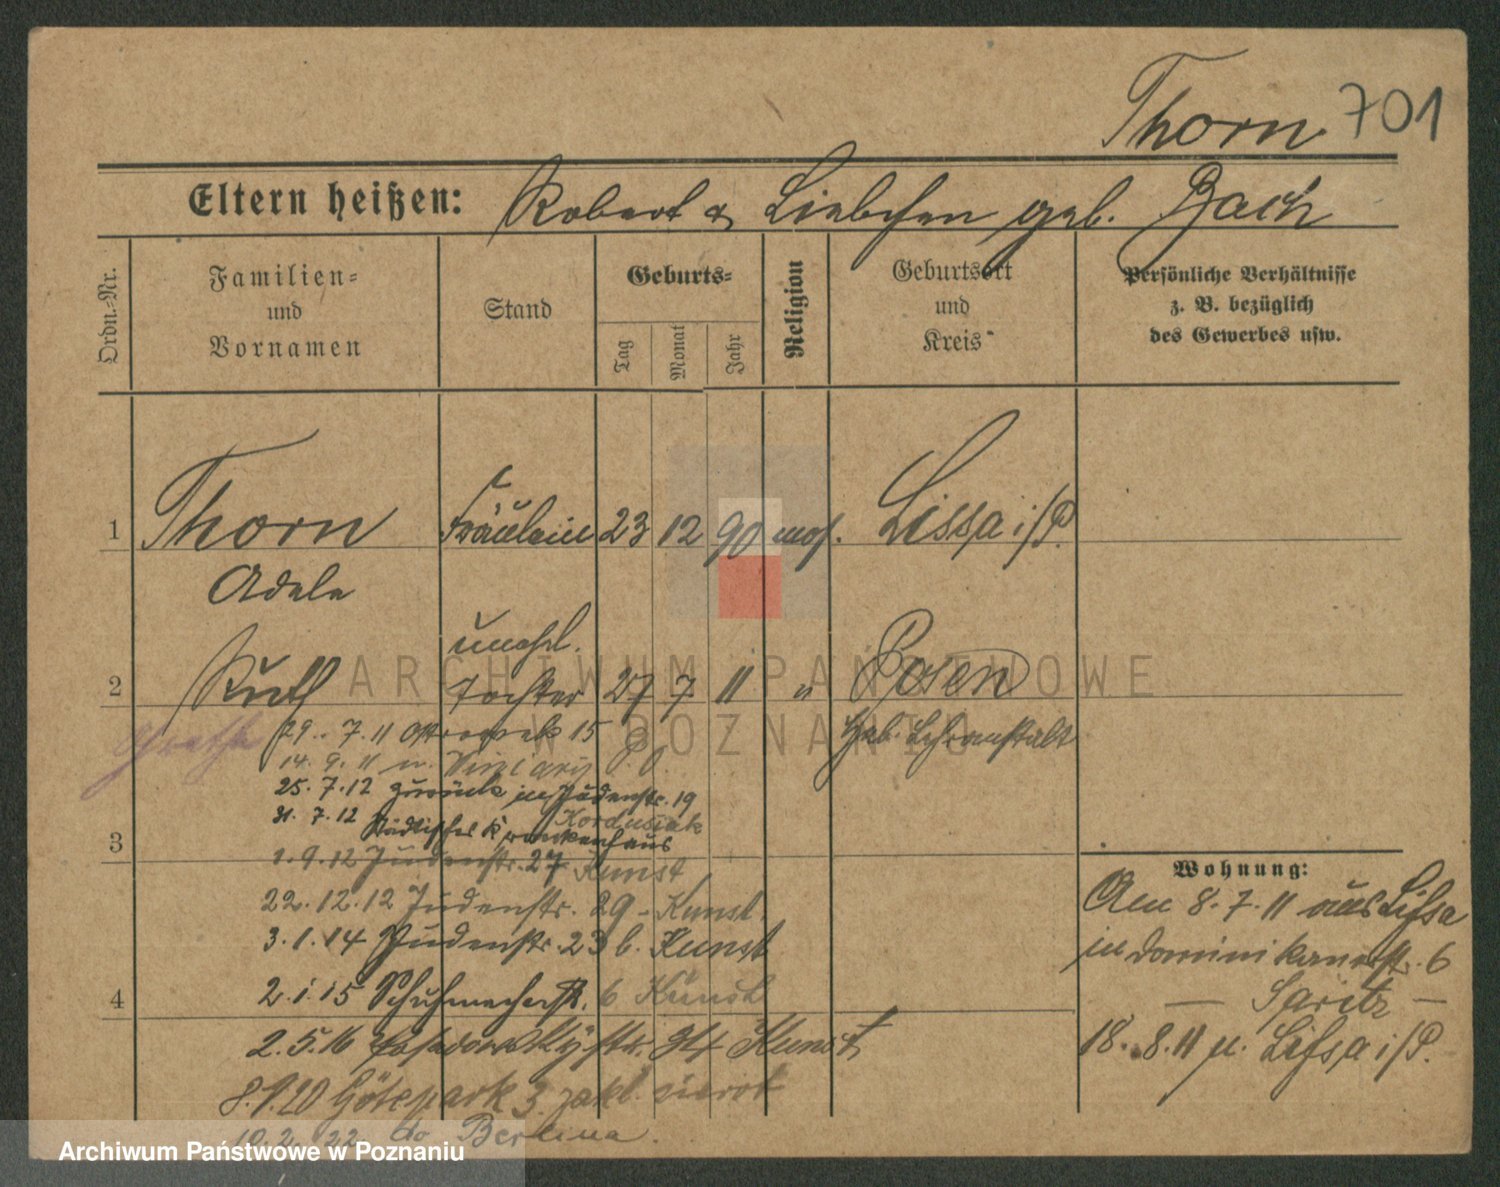 Thorn 701
Eltern heißen: Robert & Liebchen geb. Bach
Ordn.-Nr.
Familien- und Vornamen
Stand
Geburts-
Tag
Monat
Jahr
Religion
Geburtsort und Kreis
Persönliche Verhältnisse z. B. bezüglich des Gewerbes usw.
1 Thorn Fräulein 23 12 90 mos. Lissa i/P.
Adele
unehel.
2 Ruth Tochter 27 7 11 " Posen
Grethe
29. 7. 11 Ostrowek 15 Heb. Lehranstalt
14. 9. 11 n. Winiary
25. 7. 12 zurück in Judenstr. 19
Kordusiak
31. 7. 12 Städtisches Krankenhaus
3
1. 9. 12 Judenstr. 27 Kunst
22. 12. 12 Judenstr. 29 - Kunst.
3. 1. 14 Judenstr. 23 b. Kunst
4
2. 1. 15 Schuhmacherstr. 6 Kunst
2. 5. 16 Posadowskystr. 34 Kunst
8. 9. 20 Götepark 3. zakł. sierot
10. 2. 22 do Berlina.
Wohnung:
Am 8. 7. 11 aus Lissa
in Dominikanerstr. 6
— Spritz —
18. 8. 11 n. Lissa i/P.
ARCHIWUM PAŃSTWOWE
W POZNANIU
Archiwum Państwowe w Poznaniu